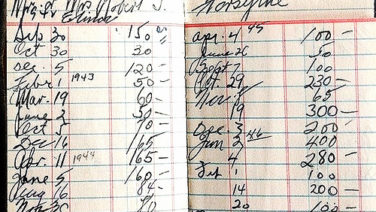 Mr & Mrs Robert S.
Sep 30 150 —
Oct 30 30
Dec. 5 120 —
Febr 1 1943 50 —
Mar. 19 60 —
June 2 50 —
Oct 5 70 —
Dec 16 65
Apr. 11 1944 165 —
June 5 160 —
Aug 16 84 —
Nov 30 70
Apr. 4 45 100 —
June 26 50
Sept 7 100 —
Oct. 29 230 —
Nov 65
19 300 —
Dec. 3 200
Jan 2 46 400
4 280 —
Feb 1 100
14 200 —
20 100